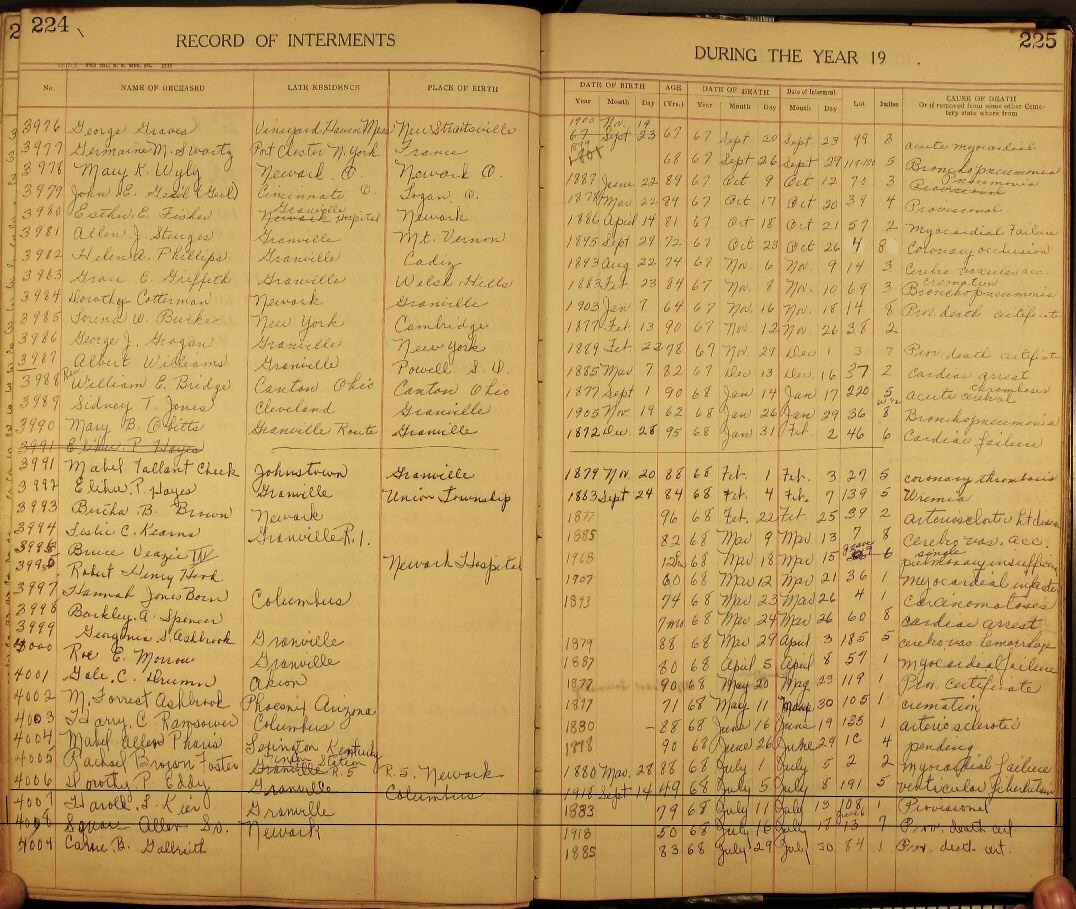 224
RECORD OF INTERMENTS
No. NAME OF DECEASED LATE RESIDENCE PLACE OF BIRTH
3976 George Graves Vineyard Haven Mass New Straitsville
3977 Germaine M. Swartz Port Chester N. York France
3978 Mary K. Wyly Newark O. Newark O.
3979 John E. Geil (Geil) Cincinnate O. Logan O.
3980 Esther E. Fisher Granville Newark Hospital Newark
3981 Allen J. Sturges Granville Mt. Vernon
3982 Helen A. Phillips Granville Cadiz
3983 Grace E. Griffeth Granville Welsh Hills
3984 Dorothy Cotterman Newark Granville
3985 Lorena W. Burke New York Cambridge
3986 George J. Grogan Granville New York
3987 Albert Williams Granville Powell S. D.
3988 Rev William E. Bridge Canton Ohio Canton Ohio
3989 Sidney T. Jones Cleveland Granville
3990 Mary B. Obitts Granville Route Granville
3991 Elihu P. Hayes
3991 Mabel Tallant Cheek Johnstown Granville
3992 Elihu P. Hayes Granville Union Township
3993 Bertha B. Brown Newark
3994 Leslie C. Kearns Granville R. 1.
3995 Bruce Veazie IV
3996 Robert Henry Hood Newark Hospital
3997 Hannah Jones Born Columbus
3998 Barkley A. Spencer
3999 Georgenia S. Ashbrook Granville
4000 Roe E. Morrow Granville
4001 Gale C. Drumm Akron
4002 M. Forrest Ashbrook Phoenix Arizona
4003 Harry C. Ransower Columbus
4004 Mabel Allen Pharis Lexington Kentucky
4005 Rachael Brown Foster Union Station Granville R. 5 R. 5. Newark
4006 Dorothy P. Eddy Granville Columbus
4007 Harold F. Kier Granville
4008 Squire Allen Sr. Newark
4009 Carrie B. Gallraith
225
DURING THE YEAR 19 .
DATE OF BIRTH AGE DATE OF DEATH Date of Interment Lot Section CAUSE OF DEATH
Year Month Day (Yrs.) Year Month Day Month Day Or if removed from some other Cemetery state where from
1900 Nov. 19
67 Sept 23 67 67 Sept 20 Sept 23 49 8 acute myocardial
68 67 Sept 26 Sept 29 5 Bronchopneumonia
1887 June 22 89 67 Oct 9 Oct 12 70 3 Pneumonia Provisional
1878 Mar 22 89 67 Oct 17 Oct 20 39 4 Provisional
1886 April 14 81 67 Oct 18 Oct 21 57 2 Myocardial Failure
1895 Sept 29 72 67 Oct 23 Oct 26 4 8 Coronary occlusion
1893 Aug 22 74 67 Nov. 6 Nov. 9 14 3 Cerebro vascular acc.
1883 Feb. 23 84 67 Nov. 8 Nov. 10 69 3 Cremation Bronchopneumonia
1903 Jan 7 64 67 Nov. 16 Nov. 18 14 8 Prov. death certificate
1877 Feb. 13 90 67 Nov. 12 Nov. 26 38 2
1889 Feb. 22 78 67 Nov. 29 Dec 1 3 7 Prov. death certificate
1885 Mar 7 82 67 Dec 13 Dec. 16 37 2 Cardiac arrest
1877 Sept 1 90 68 Jan 14 Jan 17 220 5 acute cerebral thrombosis
1905 Nov. 19 62 68 Jan 26 Jan 29 36 8 Bronchopneumonia
1872 Dec. 28 95 68 Jan 31 Feb. 2 46 6 Cardiac failure
1879 Nov. 20 88 68 Feb. 1 Feb. 3 27 5 coronary thrombosis
1883 Sept 24 84 68 Feb. 4 Feb. 7 139 5 Uremia
1877 96 68 Feb. 22 Feb 25 39 2 arteriosclerotic ht disease
1885 82 68 Mar 9 Mar 13 7 8 cerebro vas. acc.
1968 68 Mar 18 Mar 15 single grave 6 pulmonary insufficiency
1907 60 68 Mar 12 Mar 21 36 1 myocardial infarction
1893 74 68 Mar 23 Mar 26 4 1 carcinomatosis
7mo 68 Mar 24 Mar 26 60 8 cardiac arrest
1879 88 68 Mar 29 April 3 185 5 cerebro vas. hemorrhage
1887 80 68 April 5 April 8 57 1 myocardial failure
1877 90 68 May 20 May 23 119 1 Prov. certificate
1897 71 68 May 11 May 30 105 1 cremation
1880 88 68 June 16 June 19 125 1 arterio sclerotic
1878 90 68 June 26 June 29 10 4 pending
1880 Mar. 28 88 68 July 1 July 5 2 2 myocardial failure
1918 Sept 14 49 68 July 5 July 8 191 5 ventricular fibrillation
1883 79 68 July 11 July 13 108 1 Provisional
1918 50 68 July 16 July 18 13 7 Prov. death cert
1885 83 68 July 29 July 30 84 1 Prov. death cert.